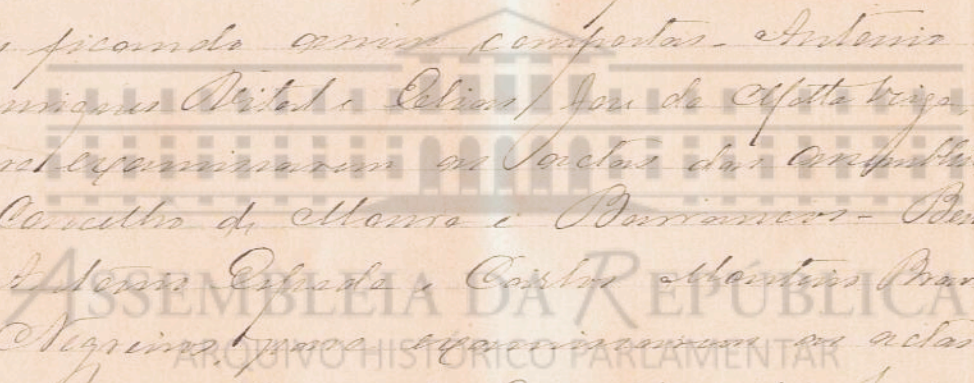 ficando assim compostas - Antonio
Vital e Elias José da Motta Veiga
examinarem as actas das assemblêas
Concelho de Moura e Barrancos - Ben
Antonio Espada e Carlos Martins Bran
Negreiros, para examinarem as actas
ASSEMBLEIA DA REPÚBLICA
ARQUIVO HISTÓRICO PARLAMENTAR